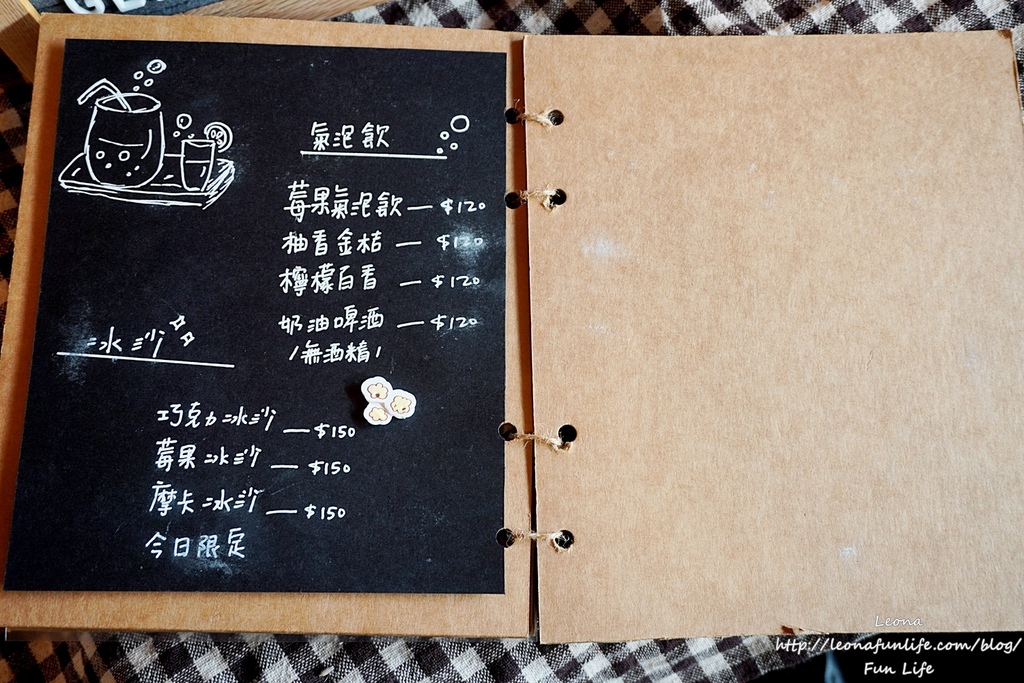 氣泡飲
莓果氣泡飲 — $120
柚香金桔 — $120
檸檬百香 — $120
奶油啤酒 — $120
/無酒精/
冰沙
巧克力冰沙 — $150
莓果冰沙 — $150
摩卡冰沙 — $150
今日限定
Leona
http://leonafunlife.com/blog/
Fun Life